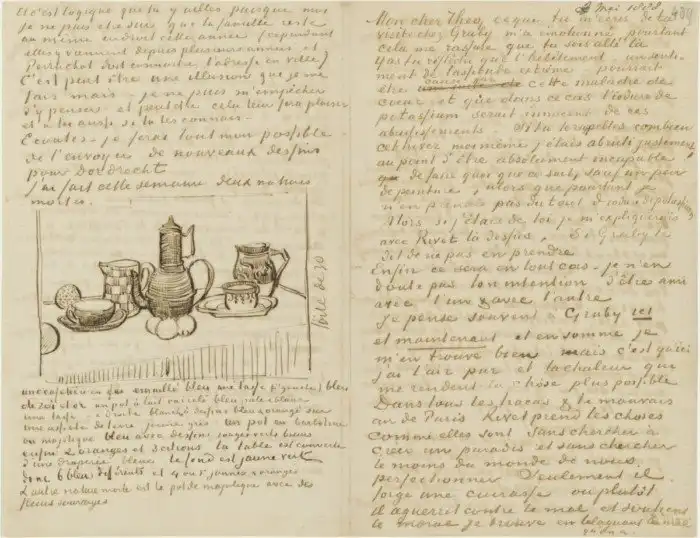 Et c'est logique que tu y ailles puisque moi
je ne puis être sûr que ta famille reste
au même endroit cette année (cependant
elles y viennent depuis plusieurs années et
doit connaître l'adresse en ville)
C'est peut être une illusion que je me
fais mais – je ne puis m'empêcher
d'y penser et peut être cela leur fera plaisir
et à toi aussi si tu les
Ecoutes – je ferai tout mon possible
de t'envoyer de nouveaux dessins
pour Dordrecht
J'ai fait cette semaine deux natures
mortes.
toile de 30
une cafetière en fer émaillé bleu une tasse (à gauche) bleu
de roi & or un pot à lait carrelé bleu pâle & blanc
une tasse – à droite blanche à dessins bleus & orangés sur
une assiette de terre jaune gris un pot en barbotine
ou majolique bleu avec dessins rouges verts bruns
enfin 2 oranges et 3 citrons la table est couverte
d'une draperie bleue le fond est jaune vert
donc 6 bleus différents et 4 ou 5 jaunes & orangés
L'autre nature morte est le pot de majolique avec des
fleurs sauvages
Mai 1888
Mon cher Theo, ce que tu m'écris de ta
visite chez Gruby m'a pourtant
cela me rassure que tu sois allé là
As tu réfléchi que l'hébétement – un senti-
ment de lassitude extrême – pourrait
être causé par cette maladie de
coeur et que dans ce cas l'iodure de
potassium serait innocent de ces
abrutissements. Si tu te rapelles combien
cet hiver moi même j'étais abruti justement
au point d'être absolument incapable
de faire quoi que ce soit, sauf un peu
de peinture, alors que pourtant je
n'en prenais pas du tout d'iodure de potassium
Alors si j'étais de toi je m'expliquerais
avec Rivet là dessus, Si Gruby te
dit de ne pas en prendre.
Enfin ce sera en tout cas – je n'en
doute pas ton intention d'être ami
avec l'un & avec l'autre
Je pense souvent à Gruby ici
et maintenant et en somme je
m'en trouve bien mais c'est qu'ici
j'ai l'air pur et la chaleur qui
me rendent la chose plus possible
Dans tous les tracas & le mauvais
air de Paris Rivet prend les choses
comme elles sont sans chercher à
créer un paradis et sans chercher
le moins du monde de nous
perfectionner Seulement il
forge une cuirasse ou plutôt
il aguerrit contre le mal et soutient
le moral je trouve en blaguant le mal
qu'on a.